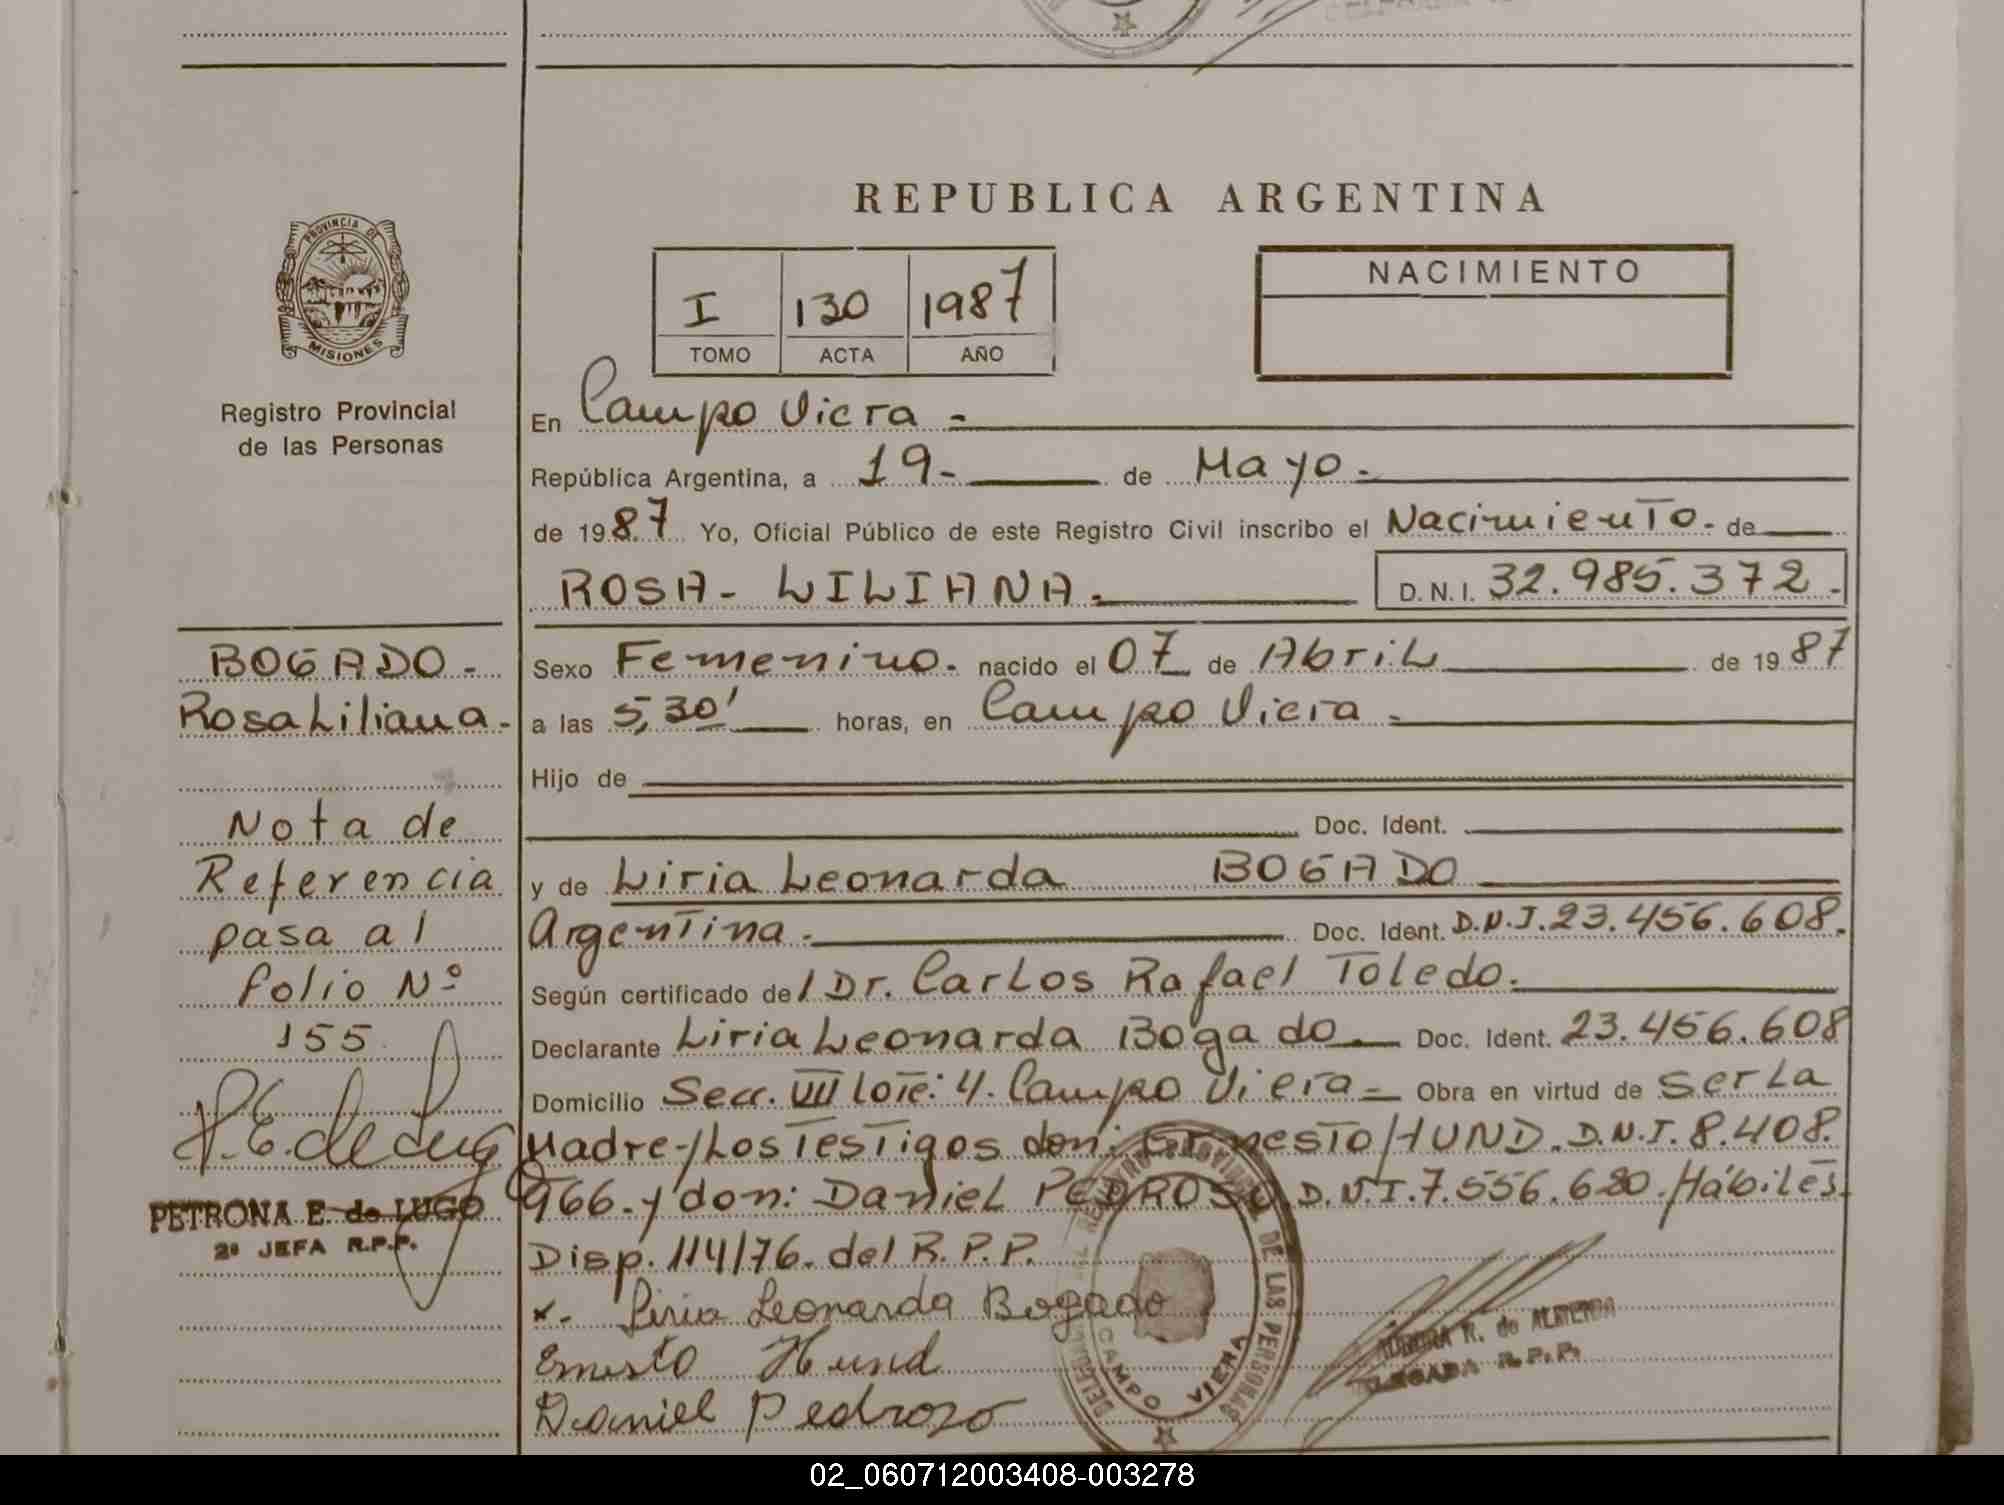 REPUBLICA ARGENTINA
PROVINCIA DE
MISIONES
Registro Provincial
de las Personas
I 130 1987
TOMO ACTA AÑO
NACIMIENTO
En Campo Viera -
República Argentina, a 19- de Mayo.
de 1987 Yo, Oficial Público de este Registro Civil inscribo el Nacimiento. de
ROSA - LILIANA. D.N.I. 32.985.372.-
BOGADO -
Rosa Liliana.-
Nota de
Referencia
pasa al
folio Nº
155
P.E. de Lugo
PETRONA E. de LUGO
2º JEFA R.P.P.
Sexo Femenino. nacido el 07 de Abril de 1987
a las 5,30' horas, en Campo Viera -
Hijo de
Doc. Ident.
y de Liria Leonarda BOGADO
Argentina. Doc. Ident. D.N.I. 23.456.608.
Según certificado del Dr. Carlos Rafael Toledo.
Declarante Liria Leonarda Bogado. Doc. Ident. 23.456.608
Domicilio Secc. VIII Lote: 4. Campo Viera - Obra en virtud de ser La
Madre-/Los Testigos don: Ernesto HUND. D.N.I. 8.408.
966. y don: Daniel PEDROSO, D.N.I. 7.556.680. Hábiles.
Disp. 114/76. del R.P.P.
x. Liria Leonarda Bogado
Ernesto Hund
Daniel Pedrozo
REGISTRO PROVINCIAL DE LAS PERSONAS
CAMPO VIERA
R. de ALMEIDA
DELEGADA R.P.P.
02_060712003408-003278